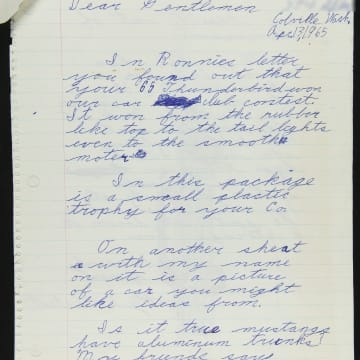 Dear Gentlemen
Colville, Wash.
Apr. 13, 1965
In Ronnies letter
you found out that
your 65 Thunderbird won
our car club contest.
It won from the rubber
like top to the tail lights
even to the smooth
moter
In this package
is a small plastic
trophy for your Co.
On another sheat
with my name
on it is a picture
of a car you might
like ideas from.
Is it true mustangs
have aluminum trunks
My friends say